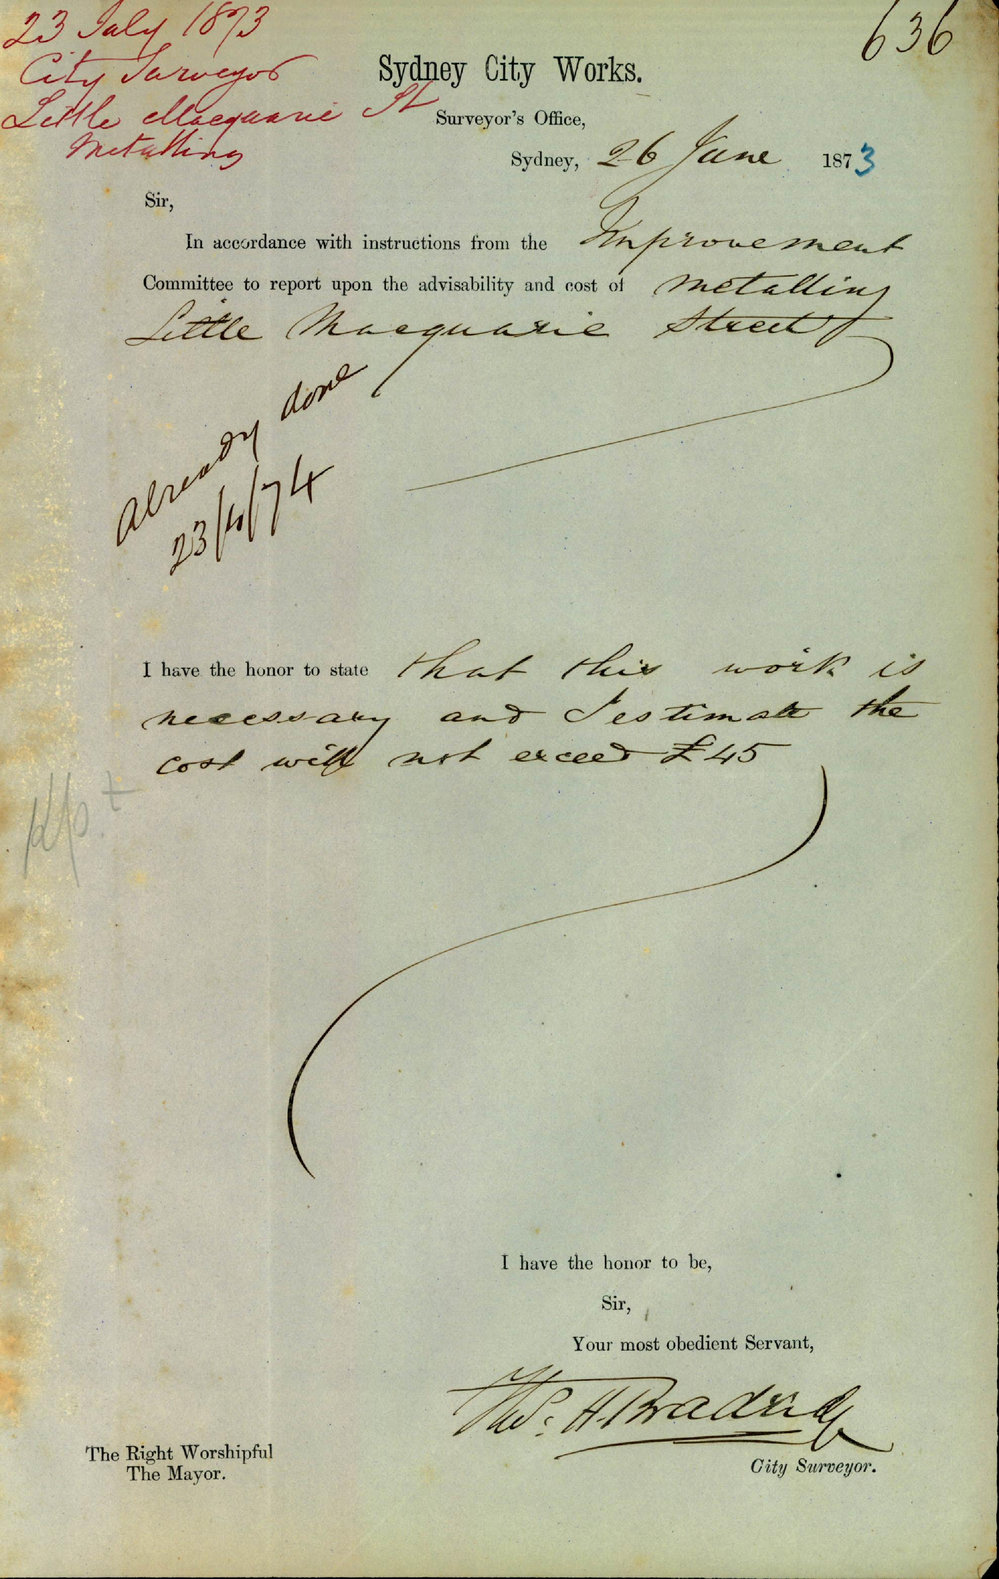 636
23 July 1873
City Surveyor
Little Macquarie St
Metalling
Sydney City Works.
Surveyor's Office,
Sydney, 26 June 1873
Sir,
In accordance with instructions from the Improvement
Committee to report upon the advisability and cost of metalling
Little Macquarie Street
Already done
23/10/74
I have the honor to state that this work is
necessary and I estimate the
cost will not exceed £45
I have the honor to be,
Sir,
Your most obedient Servant,
Thos. H. Bradridge
City Surveyor.
The Right Worshipful
The Mayor.